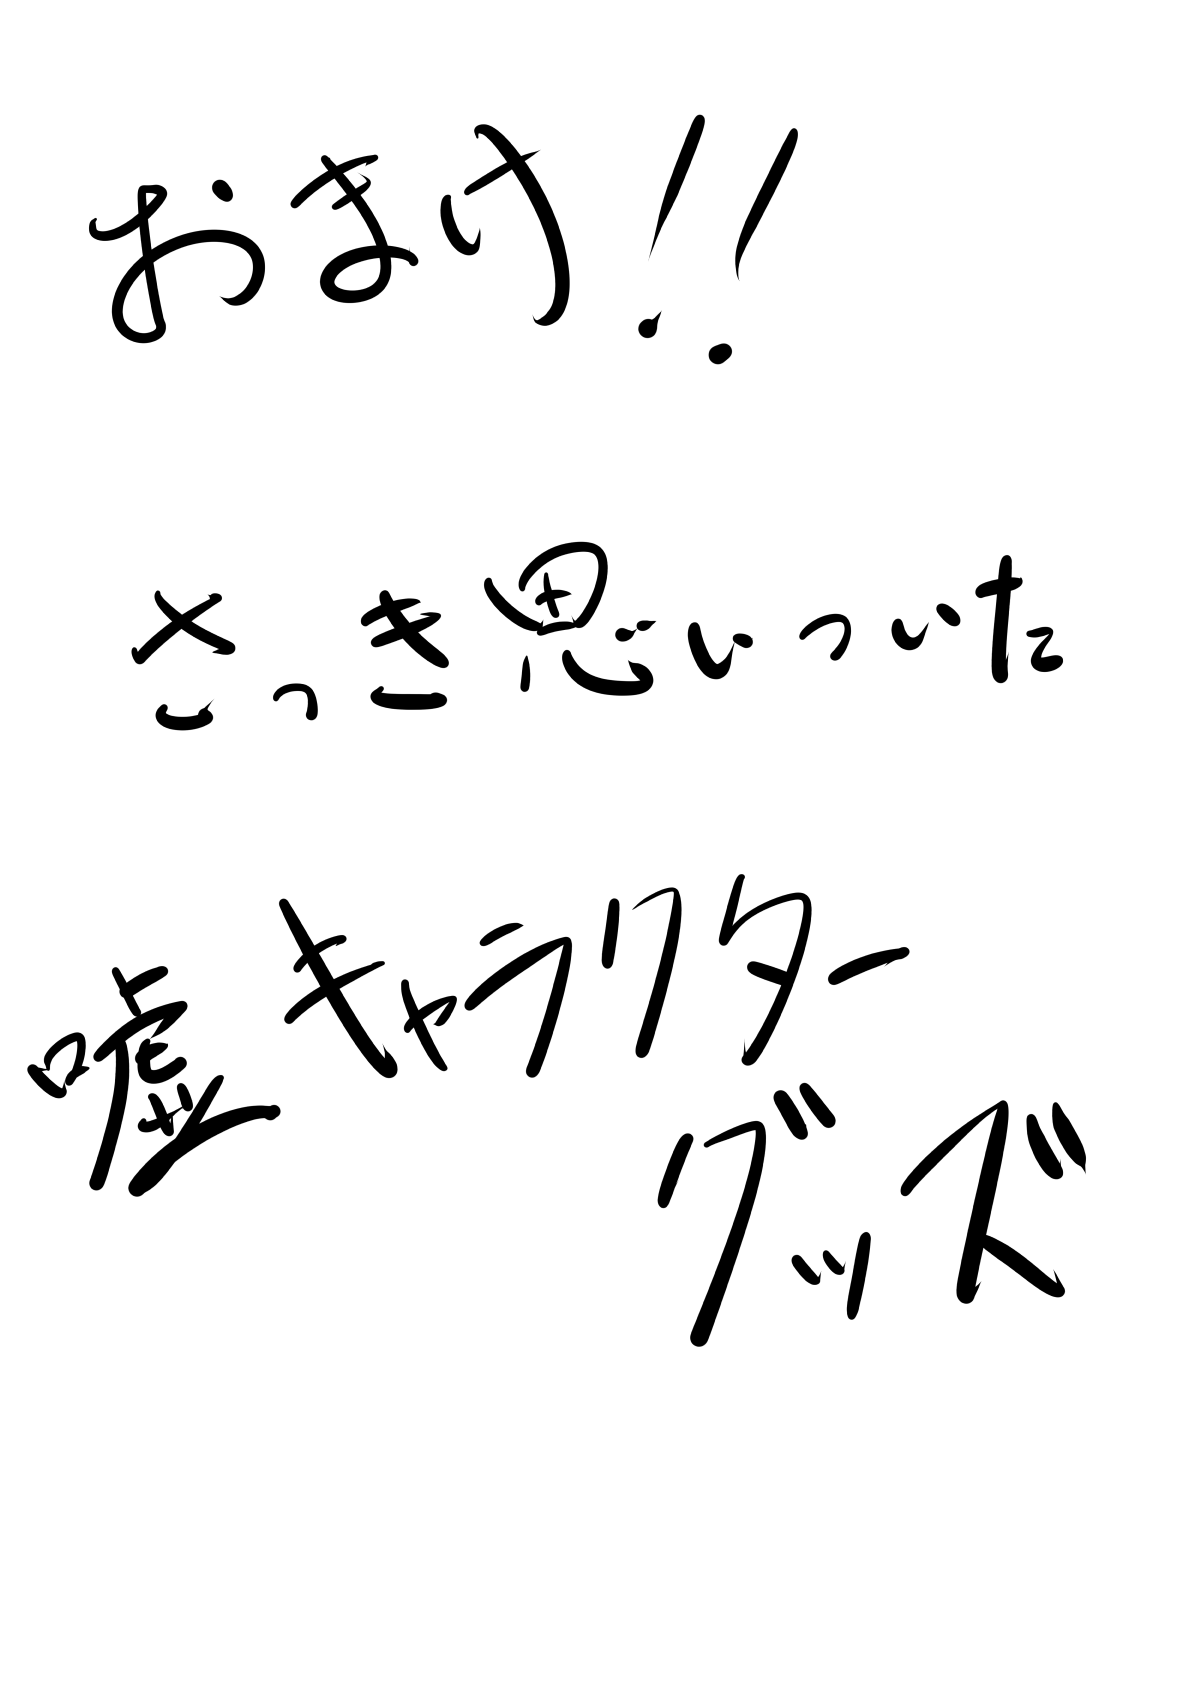 おまけ!!
さっき思いついた
嘘キャラクター
グッズ